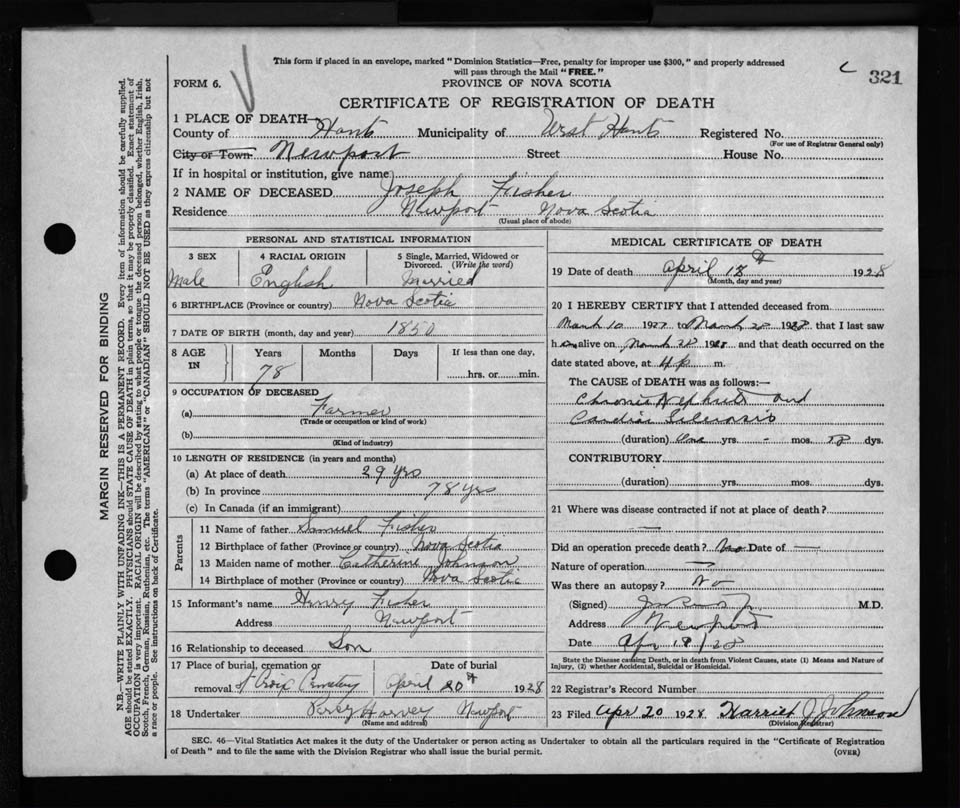 This form if placed in an envelope, marked "Dominion Statistics—Free, penalty for improper use $300," and properly addressed
will pass through the Mail "FREE."
c 321
FORM 6.
PROVINCE OF NOVA SCOTIA
CERTIFICATE OF REGISTRATION OF DEATH
1 PLACE OF DEATH—
County of Hants Municipality of West Hants Registered No.
(For use of Registrar General only)
City or Town Newport Street House No.
If in hospital or institution, give name
2 NAME OF DECEASED Joseph Fisher
Residence Newport Nova Scotia
(Usual place of abode)
PERSONAL AND STATISTICAL INFORMATION
3 SEX 4 RACIAL ORIGIN 5 Single, Married, Widowed or
Divorced. (Write the word)
Male English Married
6 BIRTHPLACE (Province or country) Nova Scotia
7 DATE OF BIRTH (month, day and year) 1850
8 AGE IN Years Months Days If less than one day,
78 hrs. or min.
9 OCCUPATION OF DECEASED
(a) Farmer
(Trade or occupation or kind of work)
(b)
(Kind of industry)
10 LENGTH OF RESIDENCE (in years and months)
(a) At place of death 29 yrs
(b) In province 78 yrs
(c) In Canada (if an immigrant)
Parents
11 Name of father Samuel Fisher
12 Birthplace of father (Province or country) Nova Scotia
13 Maiden name of mother Catherine Johnson
14 Birthplace of mother (Province or country) Nova Scotia
15 Informant's name Henry Fisher
Address Newport
16 Relationship to deceased Son
17 Place of burial, cremation or Date of burial
removal St Croix Cemetery April 20th 1928
18 Undertaker Percy Harvey Newport
(Name and address)
MEDICAL CERTIFICATE OF DEATH
19 Date of death April 18th 1928
(Month, day and year)
20 I HEREBY CERTIFY that I attended deceased from
March 10 1927 to March 28 1928 that I last saw
h alive on March 28 1928 and that death occurred on the
date stated above, at 4 p m.
The CAUSE of DEATH was as follows:—
Chronic Nephritis and
Cardiac Sclerosis
(duration) One yrs. - mos. 18 dys.
CONTRIBUTORY
(duration) yrs. mos. dys.
21 Where was disease contracted if not at place of death?
—
Did an operation precede death? No Date of —
Nature of operation —
Was there an autopsy? No
(Signed) M.D.
Address Newport
Date Apr 19/28
State the Disease causing Death, or in death from Violent Causes, state (1) Means and Nature of
Injury, (2) whether Accidental, Suicidal or Homicidal.
22 Registrar's Record Number
23 Filed Apr 20 1928 Harriet J Johnson
(Division Registrar)
SEC. 46—Vital Statistics Act makes it the duty of the Undertaker or person acting as Undertaker to obtain all the particulars required in the "Certificate of Registration
of Death" and to file the same with the Division Registrar who shall issue the burial permit. (OVER)
MARGIN RESERVED FOR BINDING
N.B.—WRITE PLAINLY WITH UNFADING INK—THIS IS A PERMANENT RECORD. Every item of information should be carefully supplied.
AGE should be stated EXACTLY. PHYSICIANS should STATE CAUSE OF DEATH in plain terms, so that it may be properly classified. Exact statement of
OCCUPATION is very important. RACIAL ORIGIN will be described by stating to what people or tongue the deceased person belonged, whether English, Irish,
Scotch, French, German, Russian, Ruthenian, etc. The terms "AMERICAN" or "CANADIAN" SHOULD NOT BE USED as they express citizenship but not
a race or people. See instructions on back of Certificate.